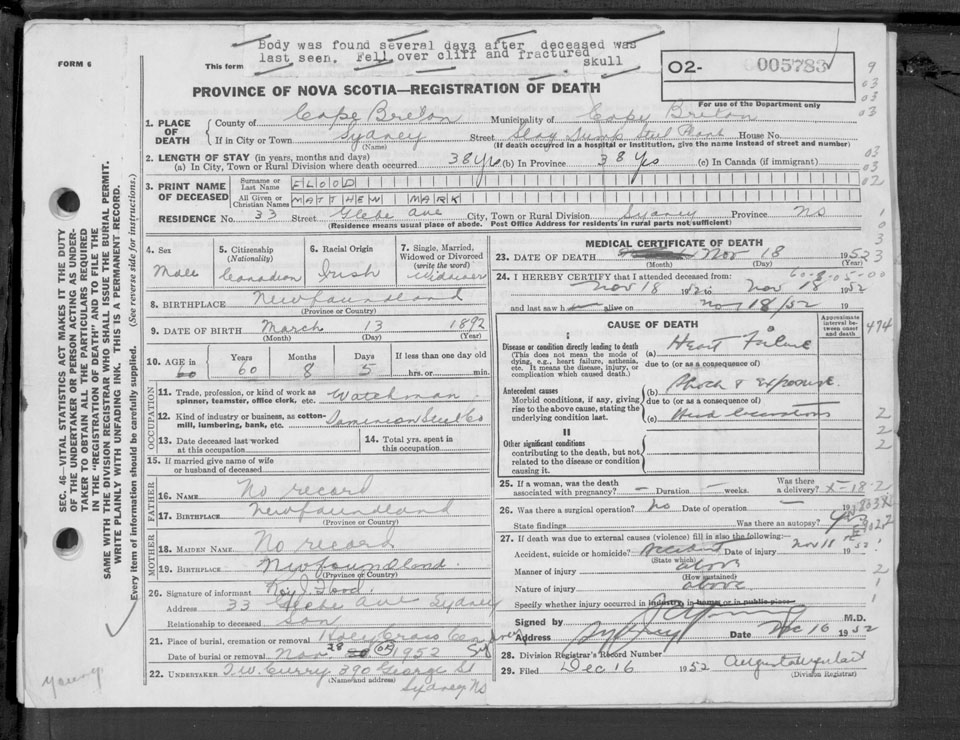 Body was found several days after deceased was
last seen. Fell over cliff and fractured
skull
FORM 6
This form
02- 005783
For use of the Department only
PROVINCE OF NOVA SCOTIA—REGISTRATION OF DEATH
1. PLACE OF DEATH County of Cape Breton Municipality of Cape Breton
If in City or Town Sydney Street Slag Dump Steel Plant House No.
(Name) (If death occurred in a hospital or institution, give name instead of street and number)
2. LENGTH OF STAY (in years, months and days)
(a) In City, Town or Rural Division where death occurred 38 Yrs (b) In Province 38 Yrs (c) In Canada (if immigrant)
3. PRINT NAME OF DECEASED Surname or Last Name FLOOD
All Given or Christian Names MATTHEW MARK
RESIDENCE No. 33 Street Glebe Ave City, Town or Rural Division Sydney Province NS
(Residence means usual place of abode. Post Office Address for residents in rural parts not sufficient)
4. Sex Male
5. Citizenship (Nationality) Canadian
6. Racial Origin Irish
7. Single, Married, Widowed or Divorced (write the word) Widower
8. BIRTHPLACE Newfoundland
(Province or Country)
9. DATE OF BIRTH March 13 1892
(Month) (Day) (Year)
10. AGE in Years 60 Months 8 Days 5 If less than one day old hrs. or min.
OCCUPATION
11. Trade, profession, or kind of work as spinner, teamster, office clerk, etc. Watchman
12. Kind of industry or business, as cotton-mill, lumbering, bank, etc. Dominion Steel Co
13. Date deceased last worked at this occupation
14. Total yrs. spent in this occupation
15. If married give name of wife or husband of deceased
FATHER
16. NAME No record
17. BIRTHPLACE Newfoundland
(Province or Country)
MOTHER
18. MAIDEN NAME No record
19. BIRTHPLACE Newfoundland
(Province or Country)
20. Signature of informant Roy J. Flood
Address 33 Glebe Ave Sydney
Relationship to deceased Son
21. Place of burial, cremation or removal Holy Cross Cem
Date of burial or removal Nov 28 1952
22. UNDERTAKER T.W. Curry 390 George St
(Name and address) Sydney NS
MEDICAL CERTIFICATE OF DEATH
23. DATE OF DEATH Nov 18 1952
(Month) (Day)
24. I HEREBY CERTIFY that I attended deceased from:
Nov 18 1952 to Nov 18 1952
and last saw h alive on Nov 18/52 19
CAUSE OF DEATH
Approximate interval between onset and death
I
Disease or condition directly leading to death (a) Heart Failure
(This does not mean the mode of dying, e.g., heart failure, asthenia, etc. It means the disease, injury, or complication which caused death.)
due to (or as a consequence of)
Antecedent causes (b) Shock & Exposure
Morbid conditions, if any, giving rise to the above cause, stating the underlying condition last.
due to (or as a consequence of)
(c) Head
II
Other significant conditions contributing to the death, but not related to the disease or condition causing it.
25. If a woman, was the death associated with pregnancy? – Duration – weeks. Was there a delivery?
26. Was there a surgical operation? No Date of operation – 19
State findings Was there an autopsy?
27. If death was due to external causes (violence) fill in also the following:—
Accident, suicide or homicide? Accident Date of injury Nov 18 1952
(State which)
Manner of injury above
(How sustained)
Nature of injury above
Specify whether injury occurred in industry in home or in public place
Signed by M.D.
Address Sydney Date Dec 16 1952
28. Division Registrar's Record Number
29. Filed Dec 16 1952
(Division Registrar)
SEC. 46—VITAL STATISTICS ACT MAKES IT THE DUTY
OF THE UNDERTAKER OR PERSON ACTING AS UNDER-
TAKER TO OBTAIN ALL THE PARTICULARS REQUIRED
IN THE "REGISTRATION OF DEATH" AND TO FILE THE
SAME WITH THE DIVISION REGISTRAR WHO SHALL ISSUE THE BURIAL PERMIT.
WRITE PLAINLY WITH UNFADING INK. THIS IS A PERMANENT RECORD.
Every item of information should be carefully supplied. (See reverse side for instructions.)
young